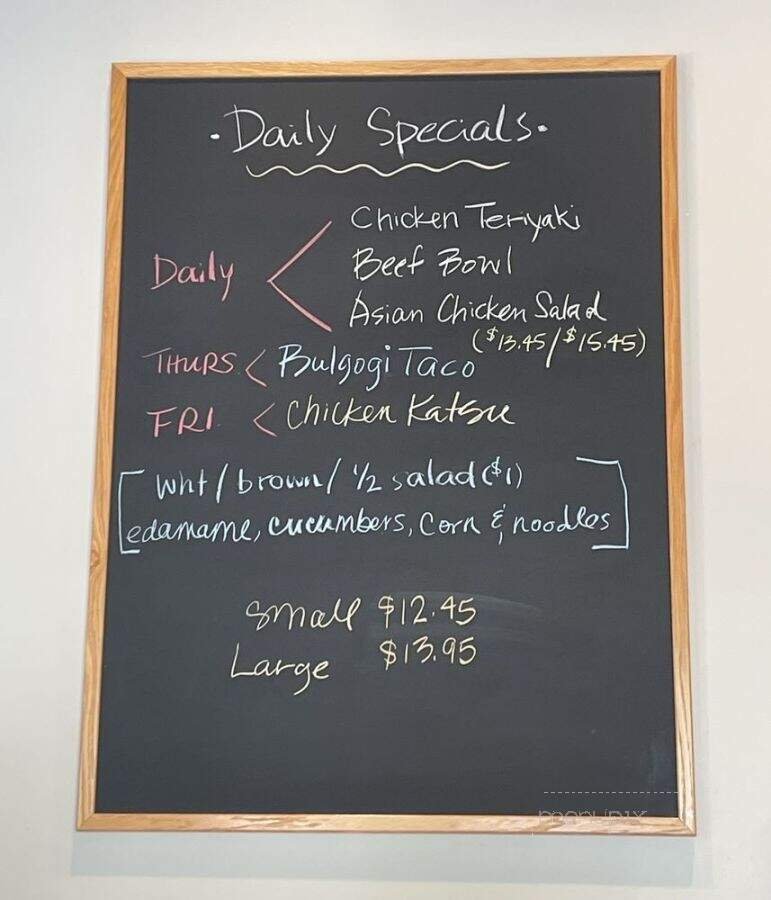 · Daily Specials ·
Chicken Teriyaki
Daily < Beef Bowl
Asian Chicken Salad
($13.45/$15.45)
THURS < Bulgogi Taco
FRI. < Chicken Katsu
[wht/brown/ 1/2 salad ($1)
edamame, cucumbers, corn & noodles]
Small $12.45
Large $13.95
menupix